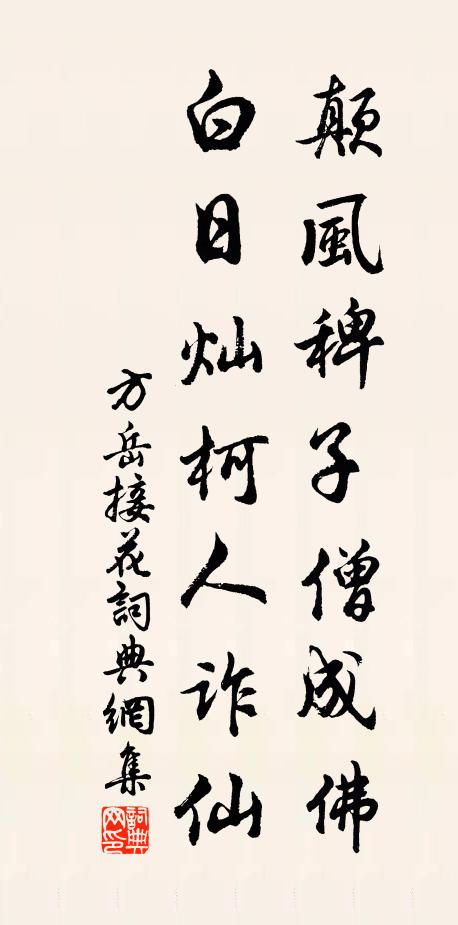 顛風稗子僧成佛
白日灿柯人诈仙
方岳接花詞典網集
詞典网印